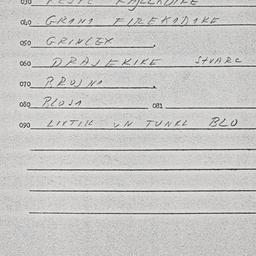 030
040 GRANA FIREKADAKE
050 GRINLEX .
060 DRAJEKIKE STVARC
070 BROJNA .
080 PLOSA 081
090 LIKTIK UN TUNKL BLO